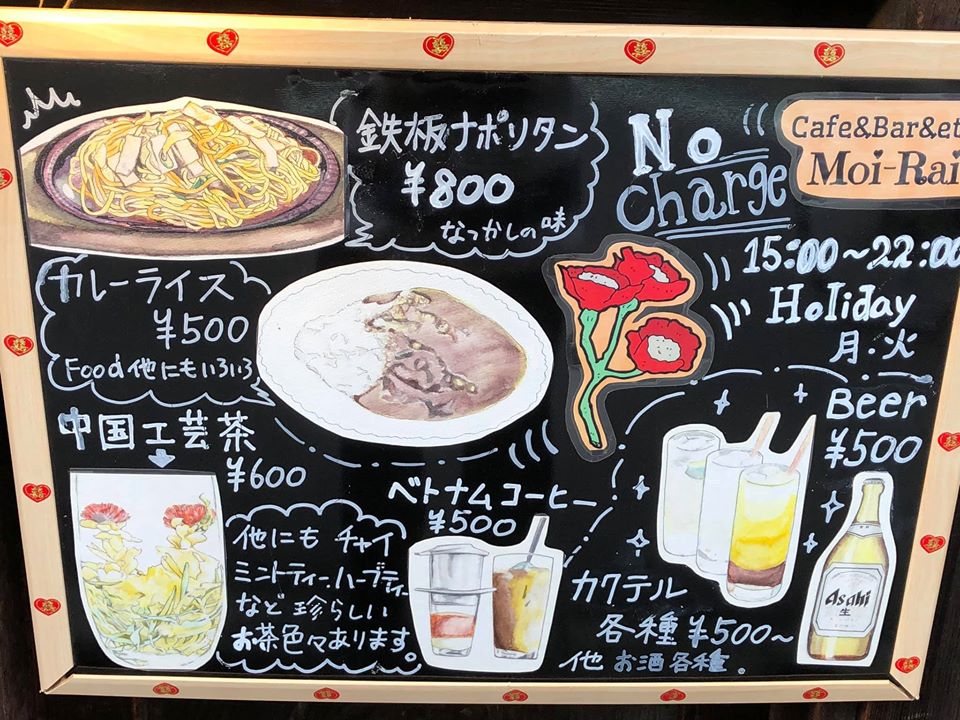 鉄板ナポリタン
¥800
なつかしの味
No
charge
Cafe&Bar&et
Moi-Rai
15:00~22:00
Holiday
月・火
カレーライス
¥500
Food他にもいろいろ
中国工芸茶
¥600
他にも チャイ
ミントティー、ハーブティー
など珍らしい
お茶色々あります。
ベトナムコーヒー
¥500
Beer
¥500
Asahi
生
カクテル
各種¥500~
他 お酒各種。